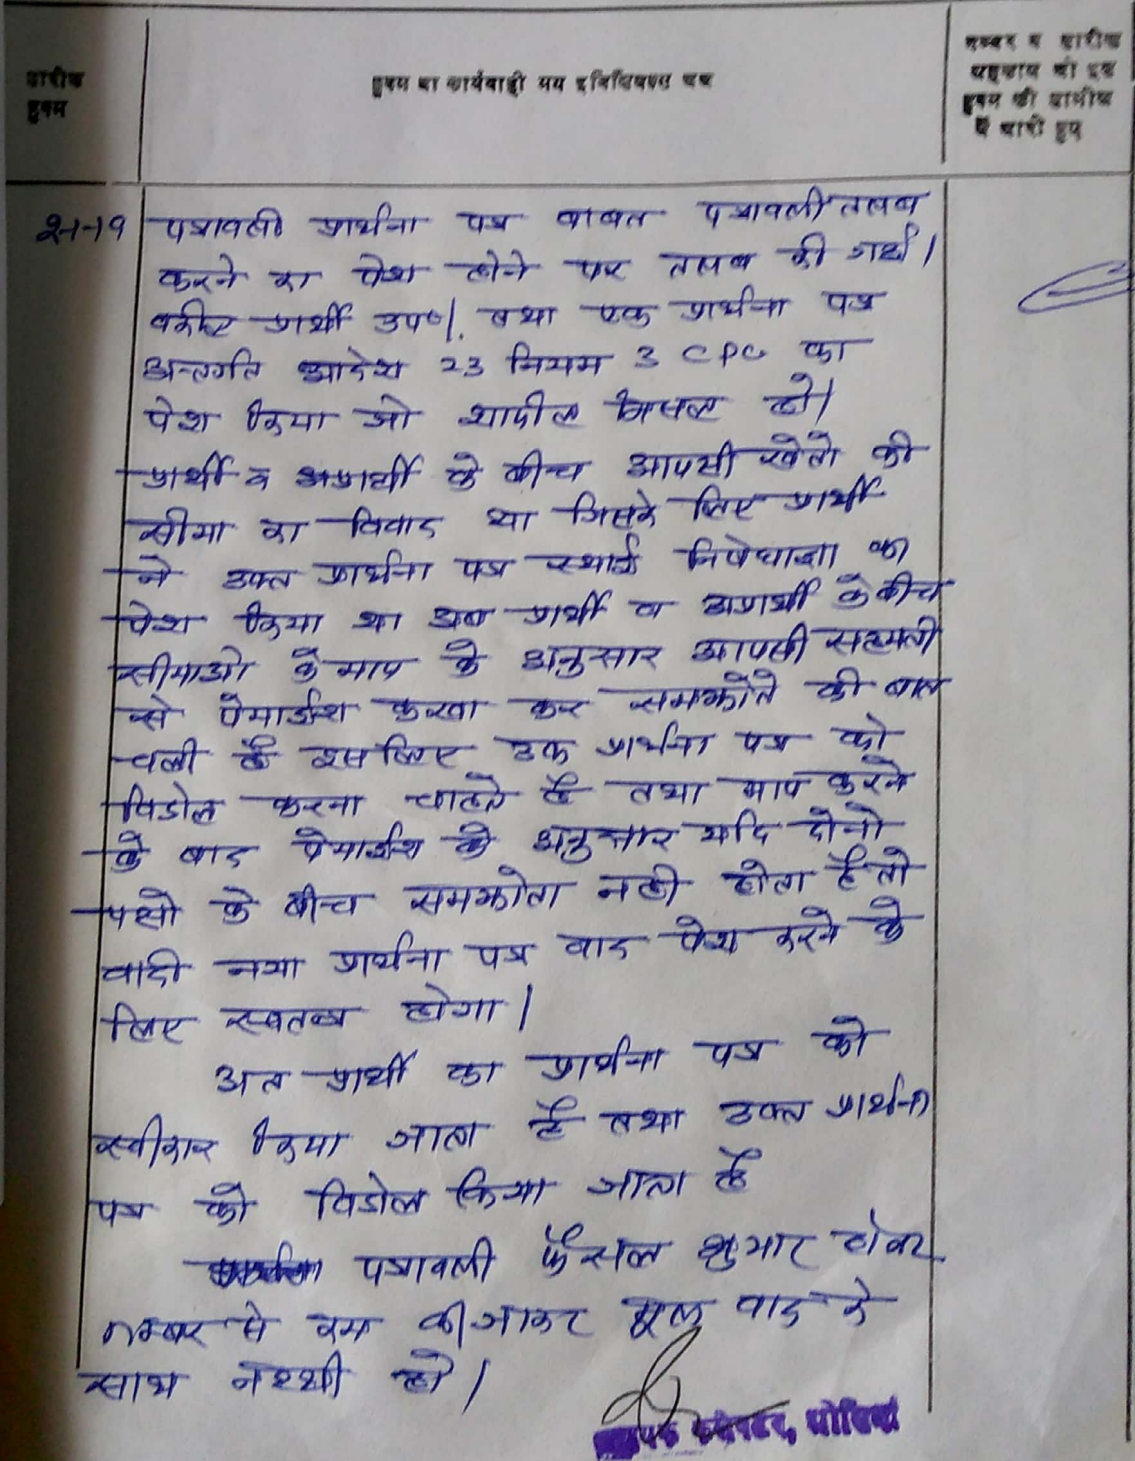 तारीख
हुक्म
हुक्म या कार्यवाही मय इनिशियल्स जज
नम्बर व तारीख
अहकाम जो इस
हुक्म की तामील
में जारी हुए
2-1-19
पत्रावली प्रार्थना पत्र बाबत पत्रावली तलब
करने का पेश होने पर तलब की गई।
वकील प्रार्थी उप०। तथा एक प्रार्थना पत्र
अन्तर्गत आदेश 23 नियम 3 CPC का
पेश किया जो शामील मिसल हो।
प्रार्थी व अप्रार्थी के बीच आपसी खेतो की
सीमा का विवाद था जिसके लिए प्रार्थी
ने उक्त प्रार्थना पत्र स्थाई निषेधाज्ञा का
पेश किया था अब प्रार्थी व अप्रार्थी के बीच
सीमाओ के माप के अनुसार आपसी सहमती
से पैमाईश करवा कर समझौते की बात
चली है इसलिए उक्त प्रार्थना पत्र को
विड्रोल करना चाहते है तथा माप करने
के बाद पैमाईश के अनुसार यदि दोनो
पक्षो के बीच समझोता नही होता है तो
वादी नया प्रार्थना पत्र वाद पेश करने के
लिए स्वतन्त्र होगा।
अत प्रार्थी का प्रार्थना पत्र को
स्वीकार किया जाता है तथा उक्त प्रार्थना
पत्र को विड्रोल किया जाता है
पत्रावली फैसल शुमार होकर
नम्बर से कम की जाकर मूल वाद के
साथ नश्थी हो।
सहायक कलेक्टर, ओसियां